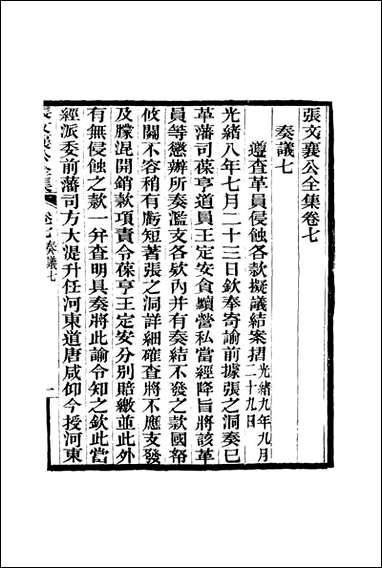 張文襄公全集卷七
奏議七
遵查革員侵蝕各款擬議結案摺光緒九年九月二十九日
光緒八年七月二十三日欽奉寄諭前據張之洞奏已
革藩司葆亨道員王定安貪黷營私當經降旨將該革
員等懲辦所奏濫支各欵內并有奏結不發之款國帑
攸關不容稍有虧短著張之洞詳細確查將不應支發
及朦混開銷款項責令葆亨王定安分別賠繳並此外
有無侵蝕之款一弁查明具奏將此諭令知之欽此當
經派委前藩司方大湜升任河東道唐咸仰今授河東
張文襄公全集
卷七 奏議七
一